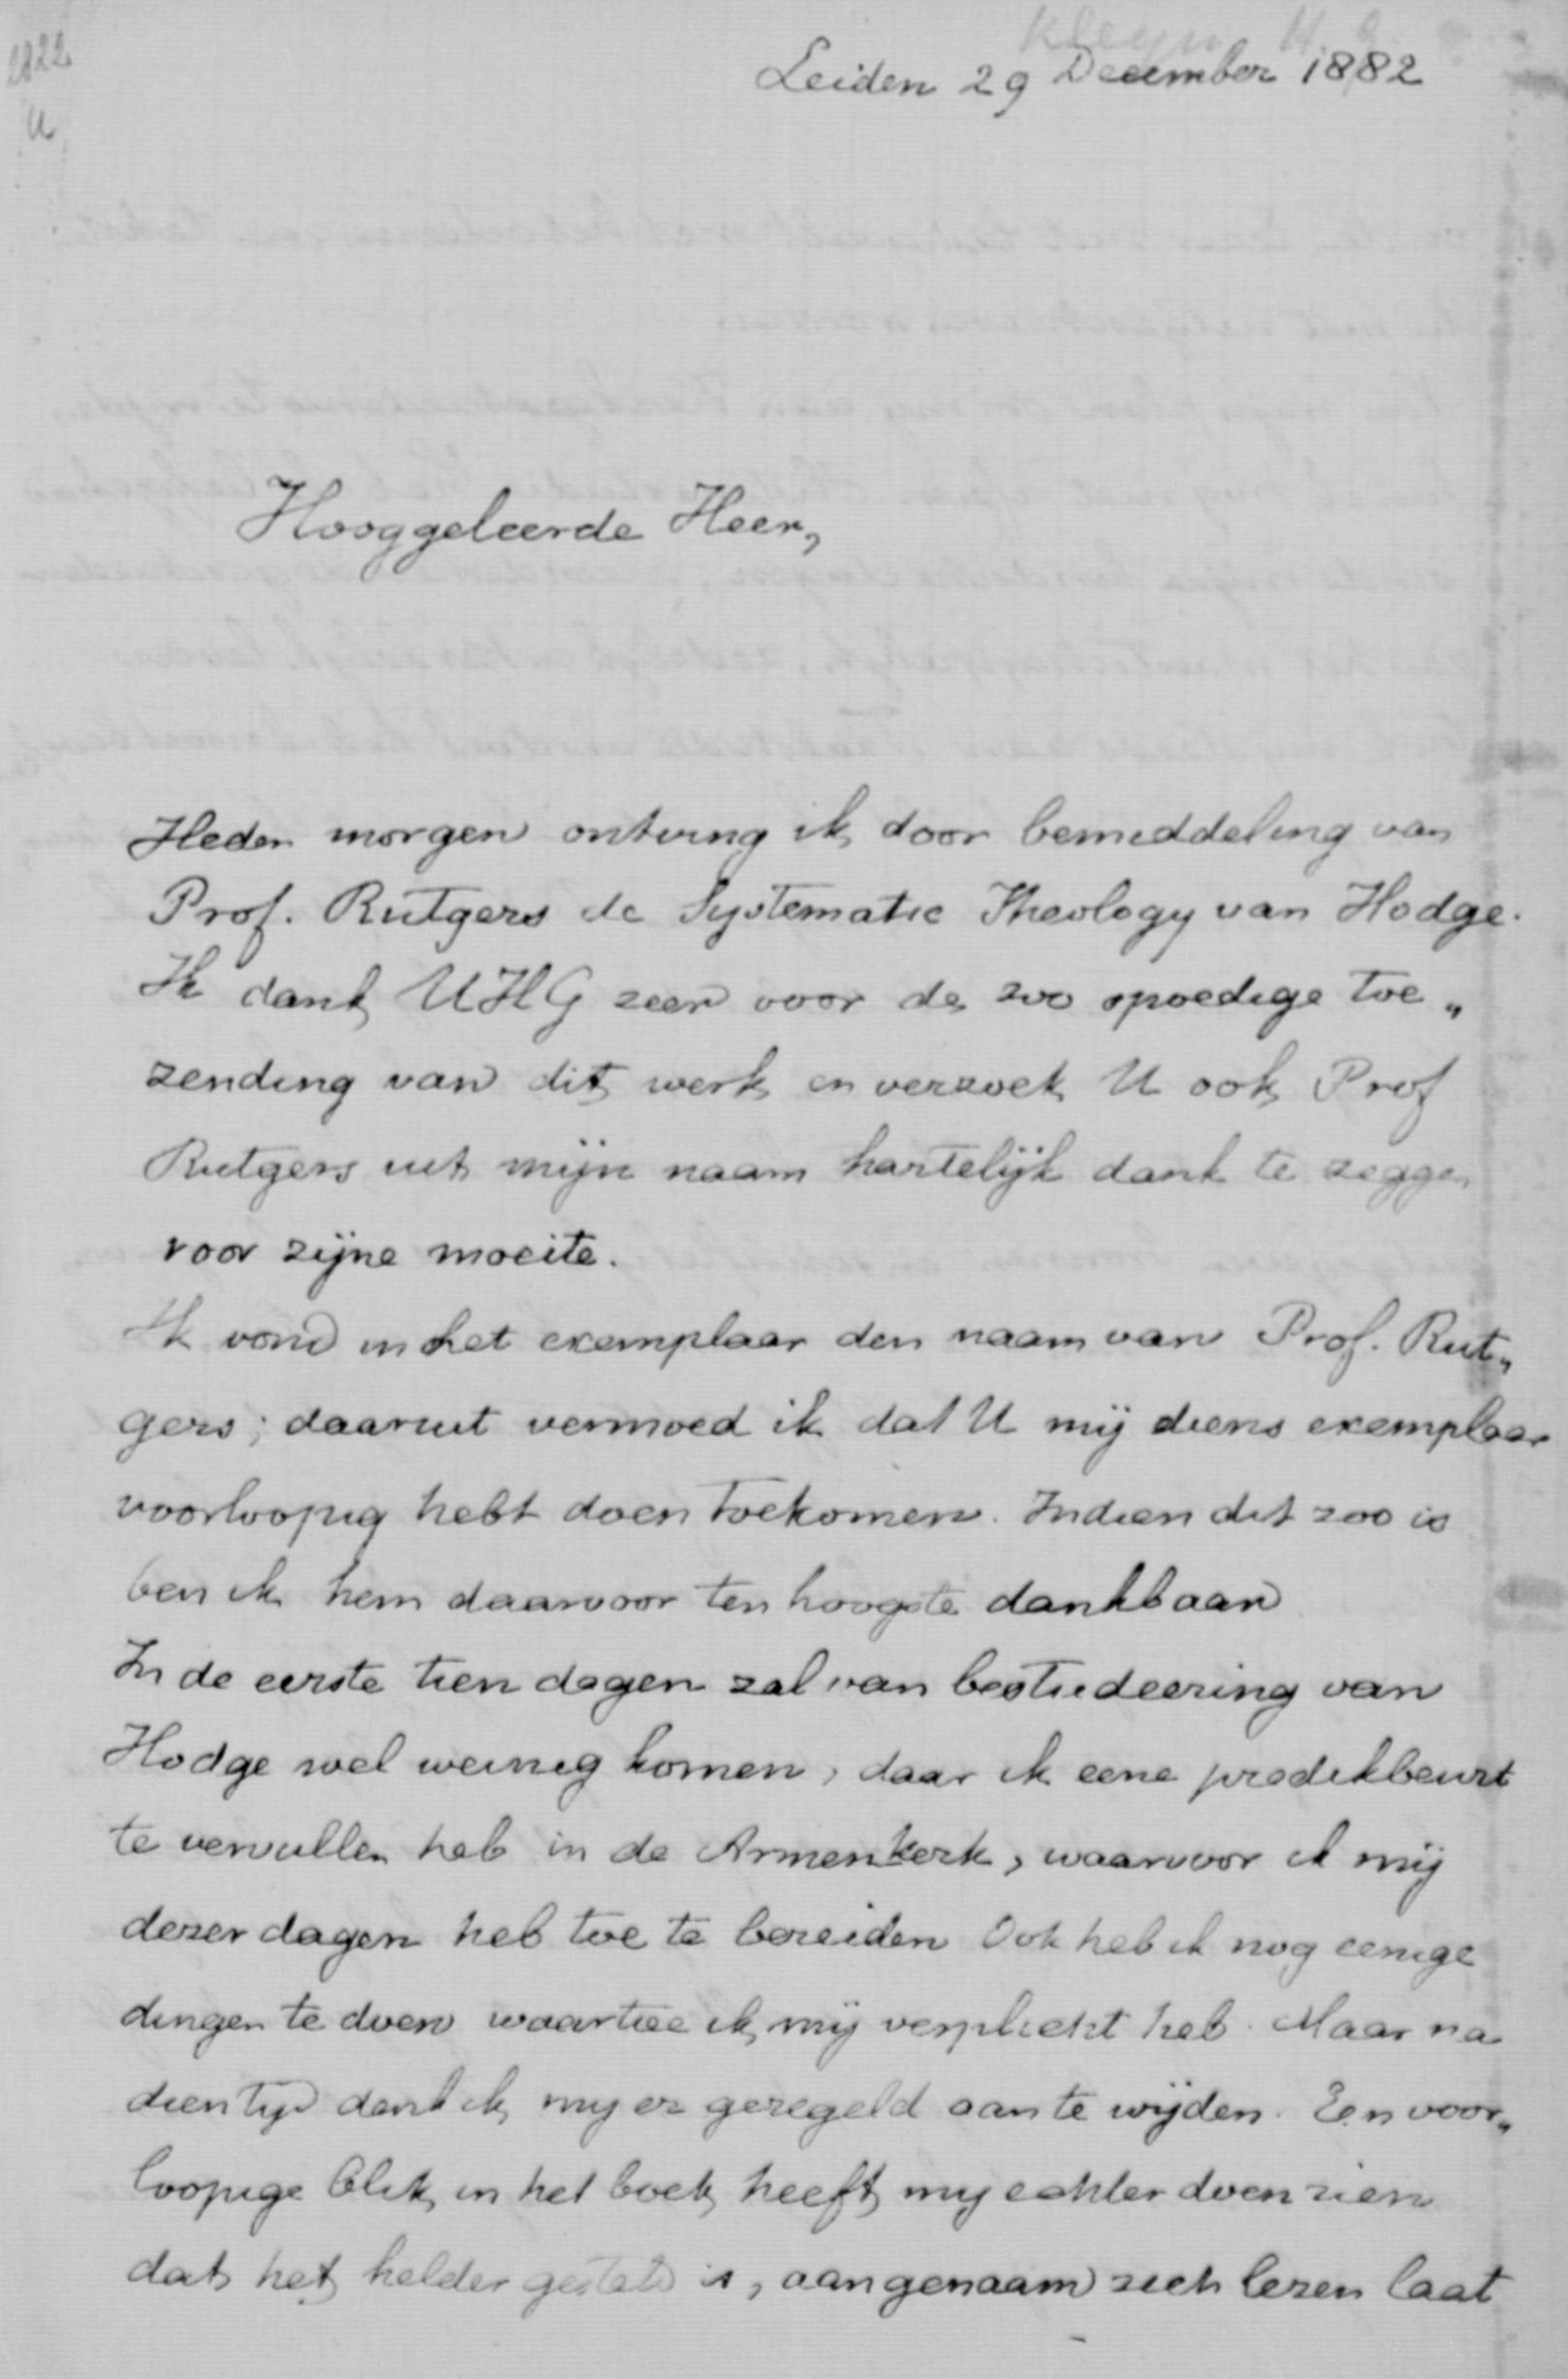 Kleyn H. G.
2822
u
Leiden 29 December 1882
Hooggeleerde Heer,
Heden morgen ontving ik door bemiddeling van
Prof. Rutgers de Systematic Theology van Hodge.
Ik dank UHG zeer voor de zoo spoedige toe„
zending van dit werk en verzoek U ook Prof
Rutgers uit mijn naam hartelijk dank te zeggen
voor zijne moeite.
Ik vond in het exemplaar den naam van Prof. Rut„
gers; daaruit vermoed ik dat U mij diens exemplaar
voorloopig hebt doen toekomen. Indien dit zoo is
ben ik hem daarvoor ten hoogste dankbaar
In de eerste tien dagen zal van bestudeering van
Hodge wel weinig komen, daar ik eene predikbeurt
te vervullen heb in de Armenkerk, waarvoor ik mij
dezer dagen heb toe te bereiden Ook heb ik nog eenige
dingen te doen waartoe ik mij verplicht heb. Maar na
dien tijd denk ik mij er geregeld aan te wijden. Een voor„
loopige blik in het boek heeft mij echter doen zien
dat het helder gesteld is, aangenaam zich lezen laat